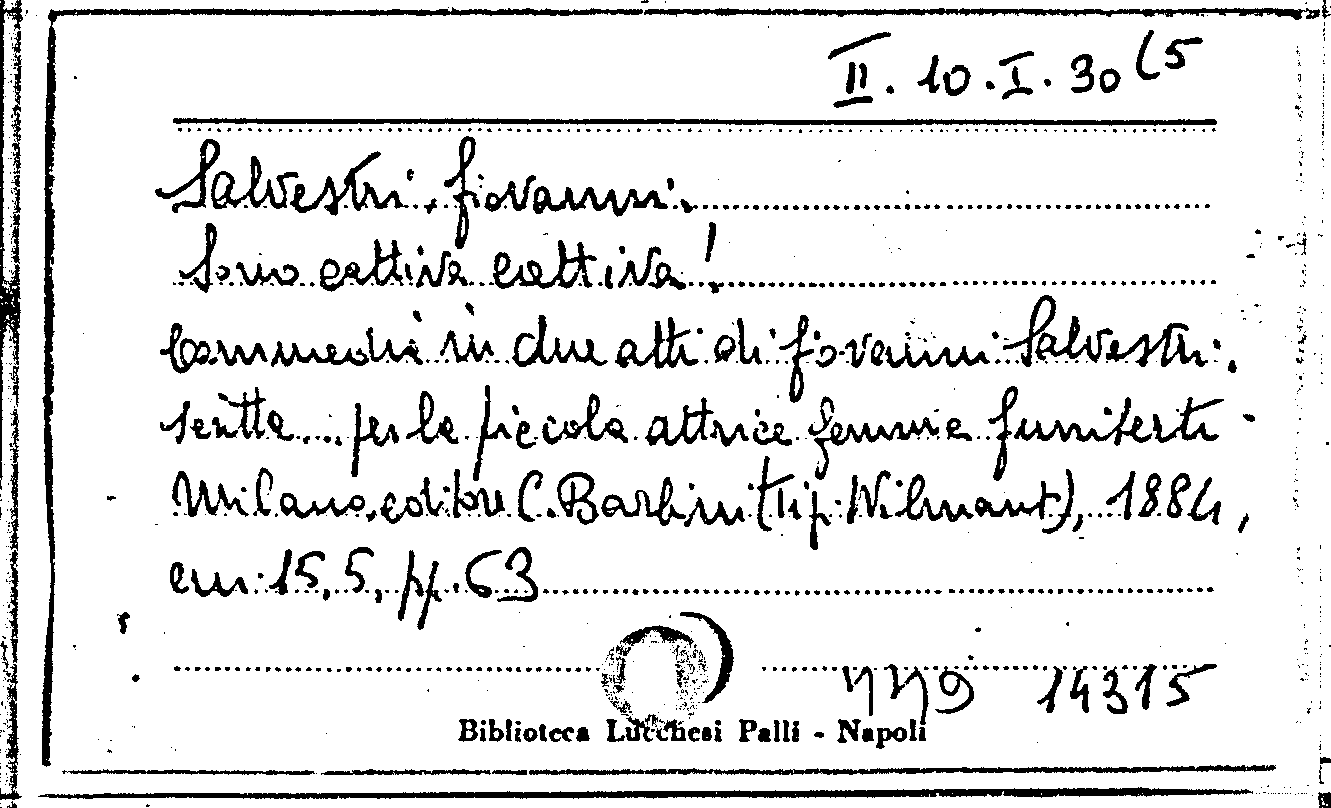 II. 10. I. 30 (5
Salvestri. Giovanni.
Sono cattiva cattiva!
Commedia in due atti di Giovanni Salvestri.
scritta... per la piccola attrice Gemma Cuniberti -
Milano, editore C. Barbini (Tip. Wilmant), 1884,
cm. 15,5, pp. 63
779 14315
Biblioteca Lucchesi Palli - Napoli